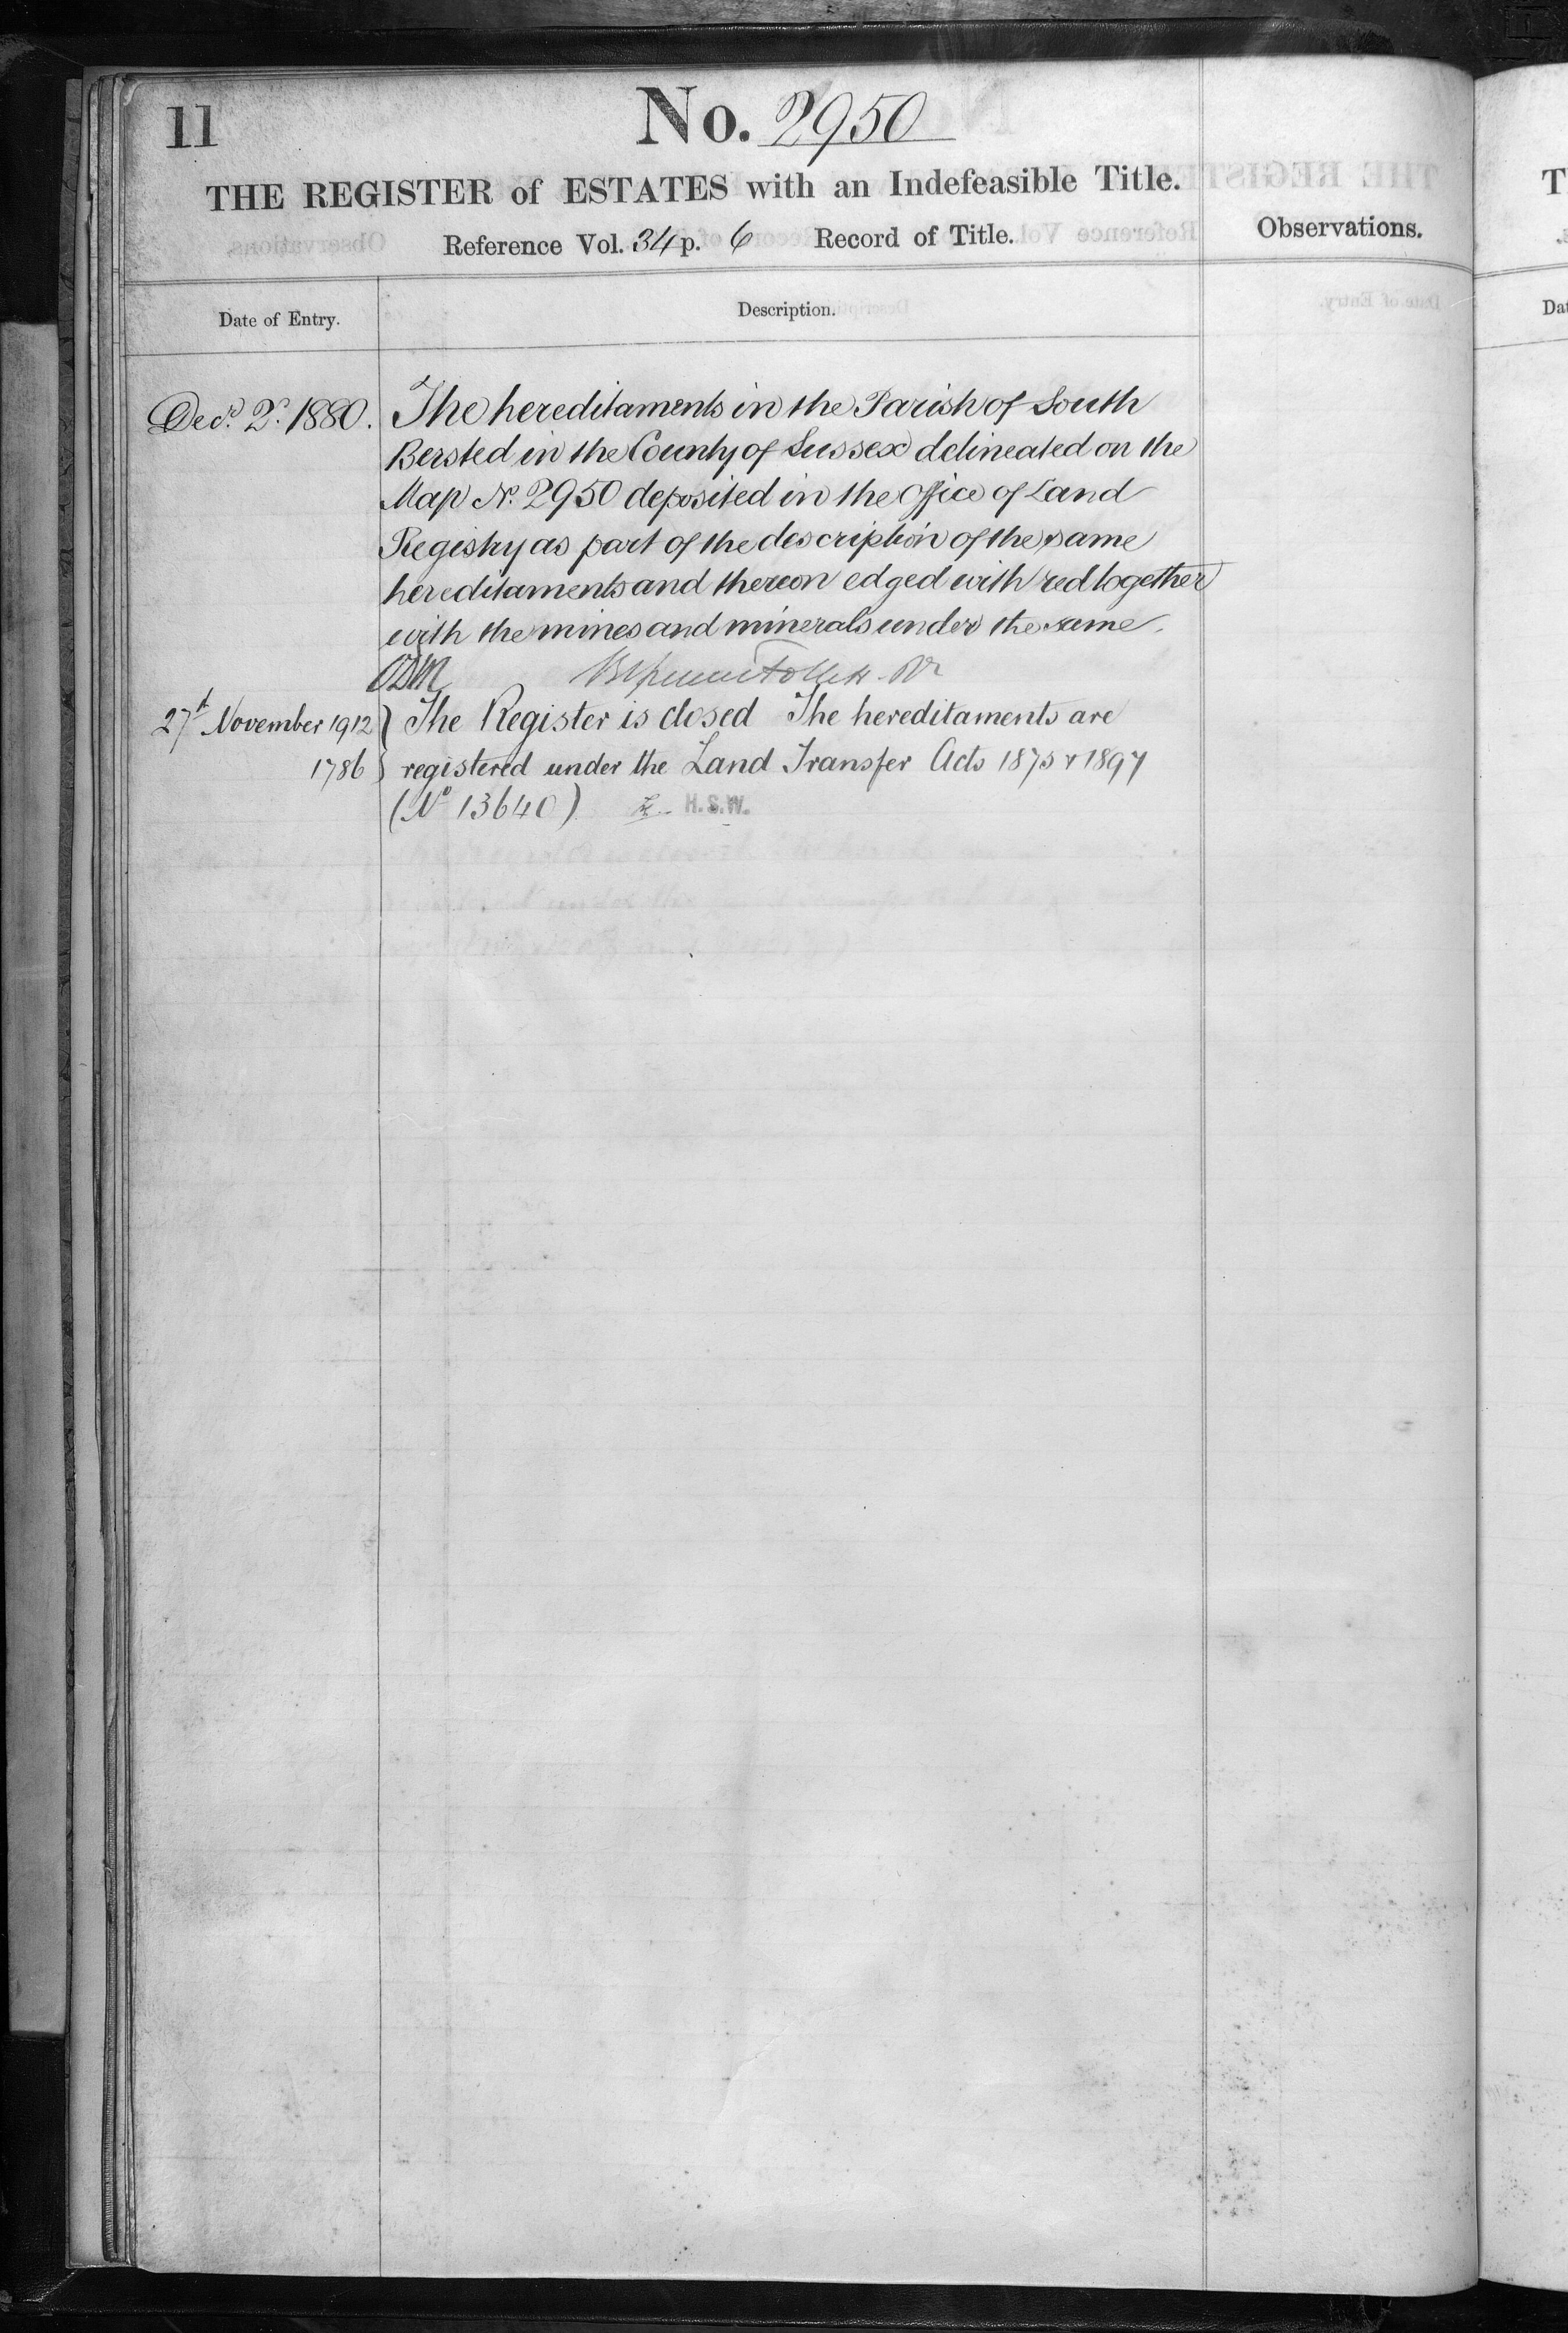 11
No. 2950
THE REGISTER of ESTATES with an Indefeasible Title.
Reference Vol. 34 p. 6 Record of Title.
Observations.
Date of Entry.
Description.
Decr. 2. 1880.
The hereditaments in the Parish of South
Bersted in the County of Sussex delineated on the
Map No. 2950 deposited in the Office of Land
Registry as part of the description of the same
hereditaments and thereon edged with red together
with the mines and minerals under the same.
27th November 1912
1786
The Register is closed The hereditaments are
registered under the Land Transfer Acts 1875 & 1897
(No 13640) H.S.W.